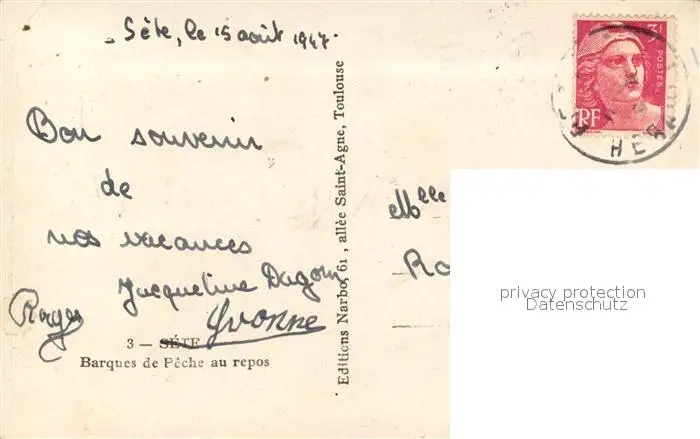 Sète, le 15 août 1947.
Bon souvenir
de
nos vacances
Jacqueline
Roger
Yvonne
3 — SÉTE
Barques de Pêche au repos
Editions Narbo, 61, allèe Saint-Agne, Toulouse
3f
POSTES
RF
HER
Mlle
Ro
privacy protection
Datenschutz